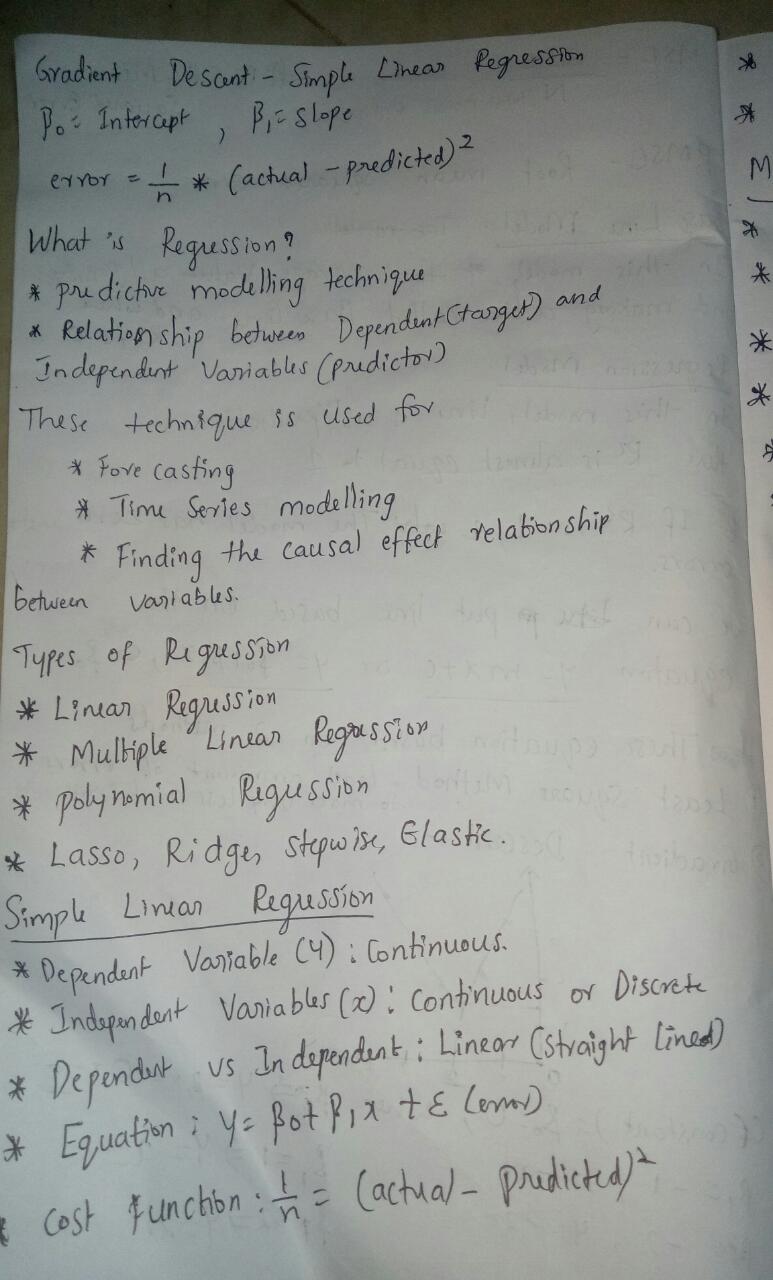 Gradient Descent - Simple Linear Regression
β₀ = Intercept , β₁ = slope
error = 1/n * (actual - predicted)²
What is Regression?
* predictive modelling technique
* Relationship between Dependent (target) and
Independent Variables (predictor)
These technique is used for
* Fore casting
* Time Series modelling
* Finding the causal effect relationship
between variables.
Types of Regression
* Linear Regression
* Multiple Linear Regression
* Polynomial Regression
* Lasso, Ridge, Stepwise, Elastic.
Simple Linear Regression
* Dependent Variable (Y) : Continuous.
* Independent Variables (x) : Continuous or Discrete
* Dependent vs Independent : Linear (straight lined)
* Equation : Y = β₀ + β₁x + ε (error)
* Cost function : 1/n = (actual - predicted)²
*
*
M
*
*
*
*